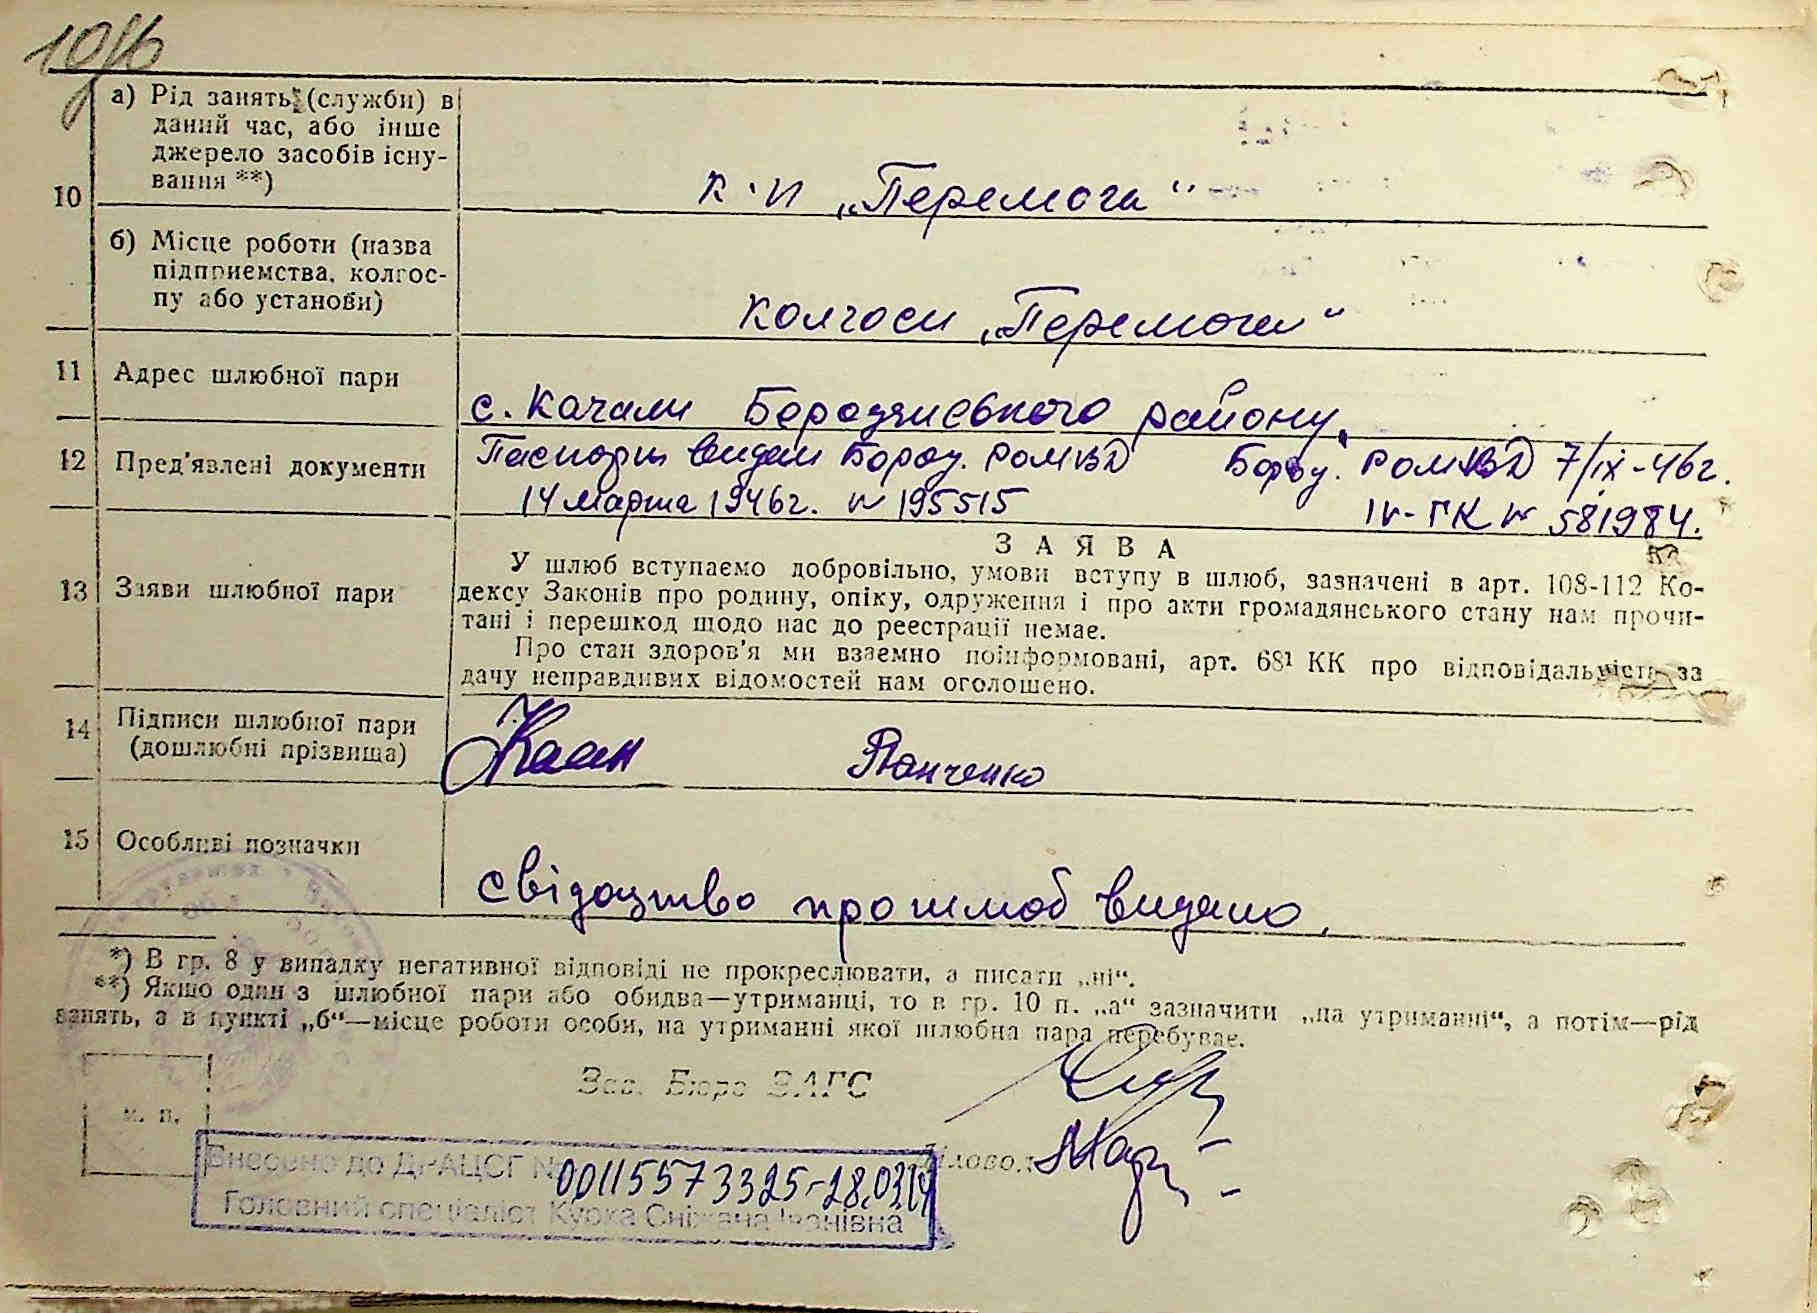 10
а) Рід занять (службы) в
даний час, або інше
джерело засобів існу-
вання **)
к-п „Перемога“
б) Місце роботи (назва
підприємства, колгос-
пу або установи)
Колгосп „Перемога“
11 Адрес шлюбної пари
с. Качали Бородянського району.
12 Пред'явлені документи
Паспорт видан Бород. РОМВД Бород. РОМВД 7/ІХ-46г.
14 марта 1946г. № 195515 IV-ГК № 581984.
13 Заяви шлюбної пари
ЗАЯВА
У шлюб вступаємо добровільно, умови вступу в шлюб, зазначені в арт. 108-112 Ко-
дексу Законів про родину, опіку, одруження і про акти громадянського стану нам прочи-
тані і перешкод щодо нас до реестрації немає.
Про стан здоров'я ми взаємно поінформовані, арт. 68¹ КК про відповідальність за
дачу неправдивих відомостей нам оголошено.
14 Підписи шлюбної пари
(дошлюбні прізвища)
Панченко
15 Особливі позначки
Свідоцтво про шлюб видано.
*) В гр. 8 у випадку негативної відповіді не прокреслювати, а писати „ні“.
**) Якшо один з шлюбної пари або обидва—утриманці, то в гр. 10 п. „а“ зазначити „на утриманні“, а потім—рід
занять, а в пункті „б“—місце роботи особи, на утриманні якої шлюбна пара перебуває.
Зав. Бюро ЗАГС
м. п.
Діловод
Внесено до ДРАЦСГ № 00115573325-28.03.14
Головний спеціаліст Курка Сніжана Іванівна